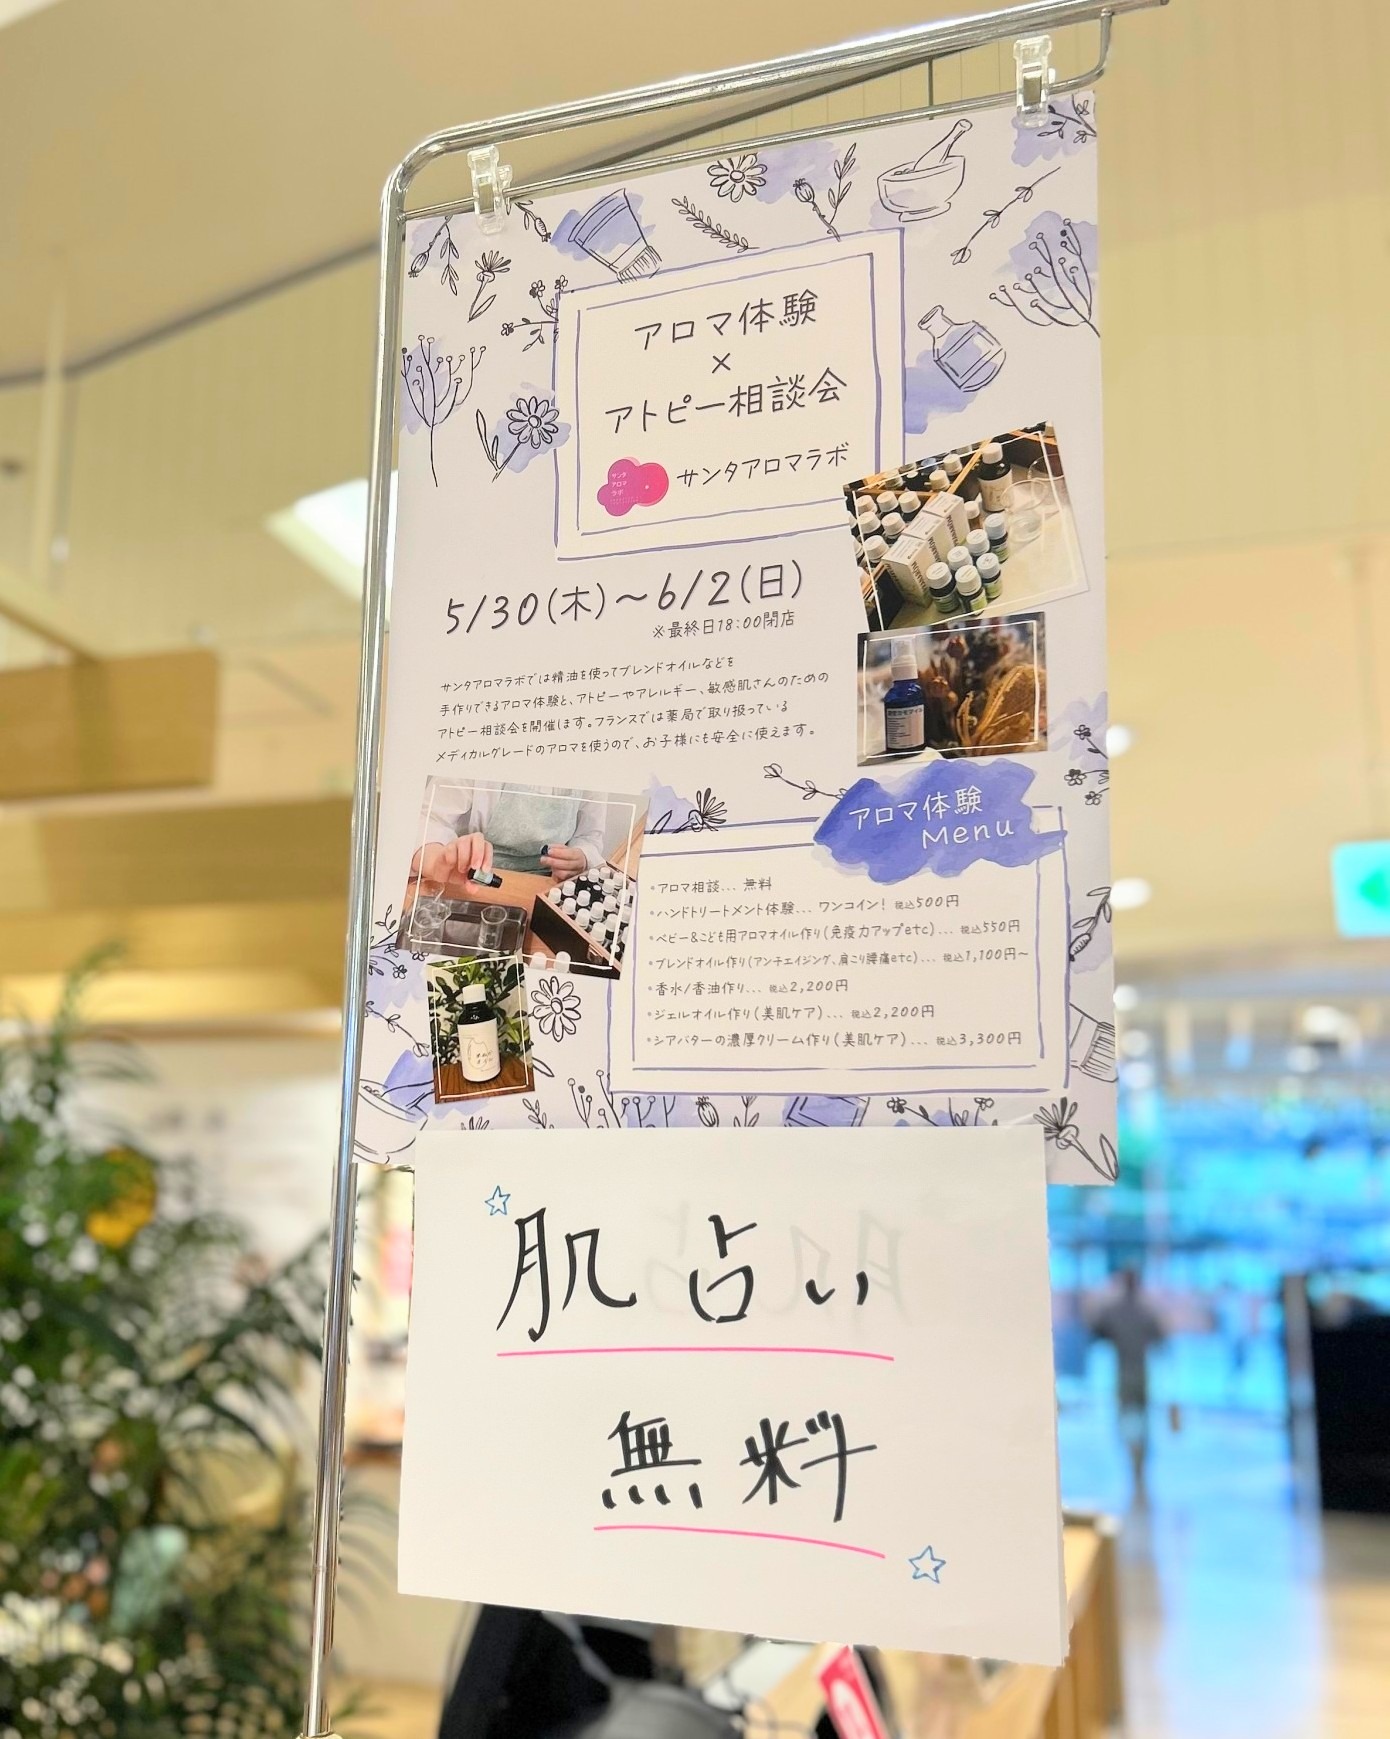 アロマ体験
×
アトピー相談会
サンタ
アロマ
ラボ
サンタアロマラボ
5/30(木)〜6/2(日)
※最終日18:00閉店
サンタアロマラボでは精油を使ってブレンドオイルなどを
手作りできるアロマ体験と、アトピーやアレルギー、敏感肌さんのための
アトピー相談会を開催します。フランスでは薬局で取り扱っている
メディカルグレードのアロマを使うので、お子様にも安全に使えます。
アロマ体験
Menu
•アロマ相談... 無料
•ハンドトリートメント体験... ワンコイン! 税込500円
•ベビー&こども用アロマオイル作り(免疫力アップetc)... 税込550円
•ブレンドオイル作り(アンチエイジング、肩こり腰痛etc)... 税込1,100円〜
•香水/香油作り... 税込2,200円
•ジェルオイル作り(美肌ケア)... 税込2,200円
•シアバターの濃厚クリーム作り(美肌ケア)... 税込3,300円
肌占い
無料